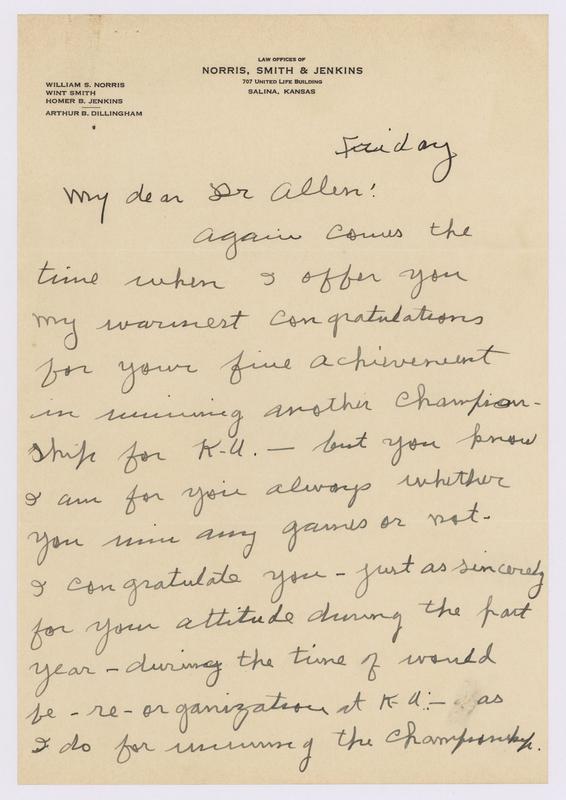 LAW OFFICES OF
NORRIS, SMITH & JENKINS
707 UNITED LIFE BUILDING
SALINA, KANSAS
WILLIAM S. NORRIS
WINT SMITH
HOMER B. JENKINS
ARTHUR B. DILLINGHAM
Friday
My dear Dr Allen!
Again comes the
time when I offer you
my warmest congratulations
for your fine achievement
in winning another champion-
ship for K-U. — but you know
I am for you always whether
you win any games or not.
I congratulate you - just as sincerely
for your attitude during the past
year - during the time of would
be - re - organization at K-U. - as
I do for winning the championship.